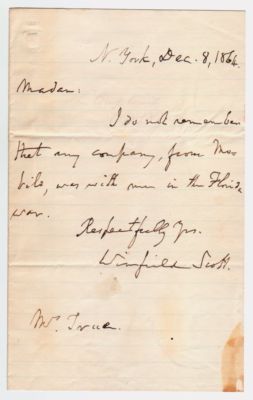 N. York, Dec. 8, 1864.
Madam:
I do not remember
that any company, from Mo-
bile, was with me in the Florida
war.
Respectfully Yrs.
Winfield Scott.
Mrs. True.